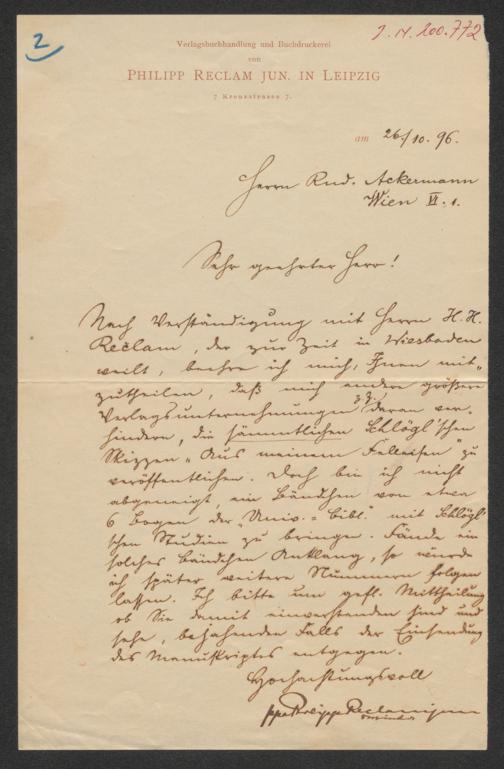 2
J. N. 200.772
Verlagsbuchhandlung und Buchdruckerei
von
PHILIPP RECLAM JUN. IN LEIPZIG
7 Kreuzstrasse 7.
am 26/10. 96.
Herrn Rud. Ackermann
Wien VI. 1.
Sehr geehrter Herr!
Nach Verständigung mit Herrn H. H.
Reclam, der zur Zeit in Wiesbaden
weilt, beehre ich mich, Ihnen mit-
zutheilen, daß mich andere größere
Verlagsunternehmungen z. Z. daran ver-
hindern, die sämmtlichen Schlögl'schen
Skizzen „Aus meinem Felleisen" zu
veröffentlichen. Doch bin ich nicht
abgeneigt, ein Bändchen von etwa
6 Bogen der „Univ.=Bibl." mit Schlögl'
schen Studien zu bringen. Fände ein
solches Bändchen Anklang, so würde
ich später weitere Nummern folgen
lassen. Ich bitte um gefl. Mittheilung
ob Sie damit einverstanden sind und
sehe, bejahenden Falls der Einsendung
des Manuskriptes entgegen.
Hochachtungsvoll
ppa Philipp Reclam jun